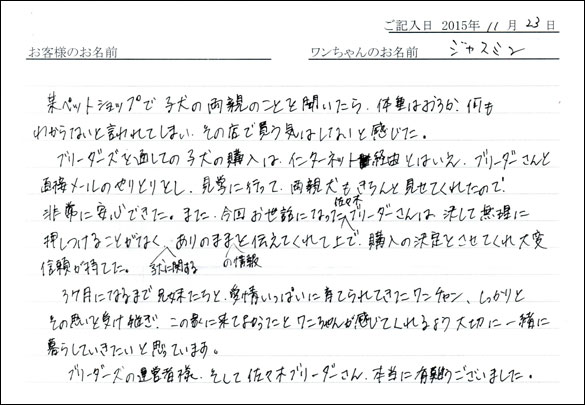 ご記入日 2015年 11月 23日
お客様のお名前 ワンちゃんのお名前 ジャスミン
某ペットショップで子犬の両親のことを聞いたら、体重はおろか、何も
わからないと言われてしまい、その店で買う気はしないと感じた。
ブリーダーズを通しての子犬の購入は、インターネット経由とはいえ、ブリーダーさんと
直接メールのやりとりをし、見学に行って、両親犬もきちんと見せてくれたので、
非常に安心できた。また、今回お世話になった佐々木ブリーダーさんは、決して無理に
押しつけることがなく、犬に関するありのままの情報を伝えてくれた上で、購入の決定をさせてくれ大変
信頼が持てた。
3ヶ月になるまで兄妹たちと、愛情いっぱいに育てられてきたワンチャン、しっかりと
その思いを受け継ぎ、この家に来てよかったとワンちゃんが感じてくれるよう大切に一緒に
暮らしていきたいと思っています。
ブリーダーズの運営者様、そして佐々木ブリーダーさん、本当に有難うございました。